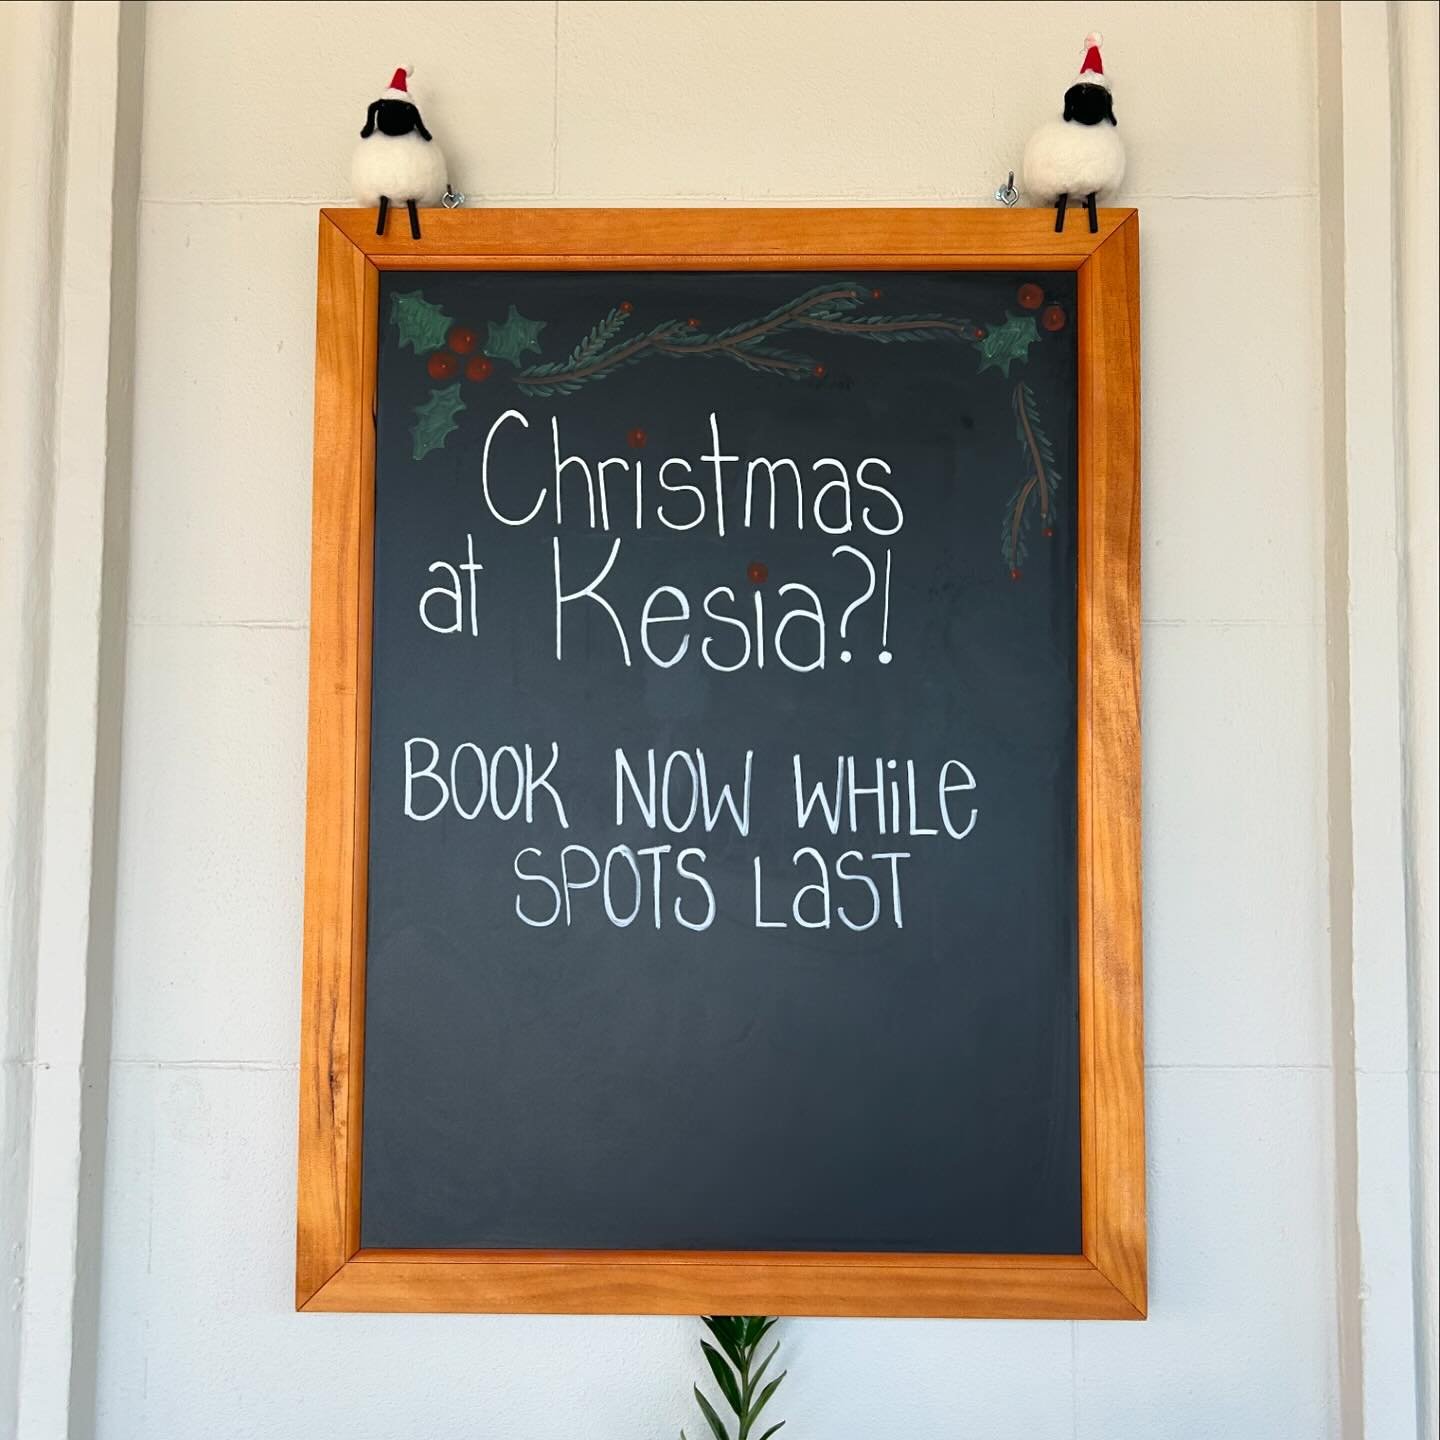 Christmas
at Kesia?!
BOOK NOW WHiLe
SPOTS LaST